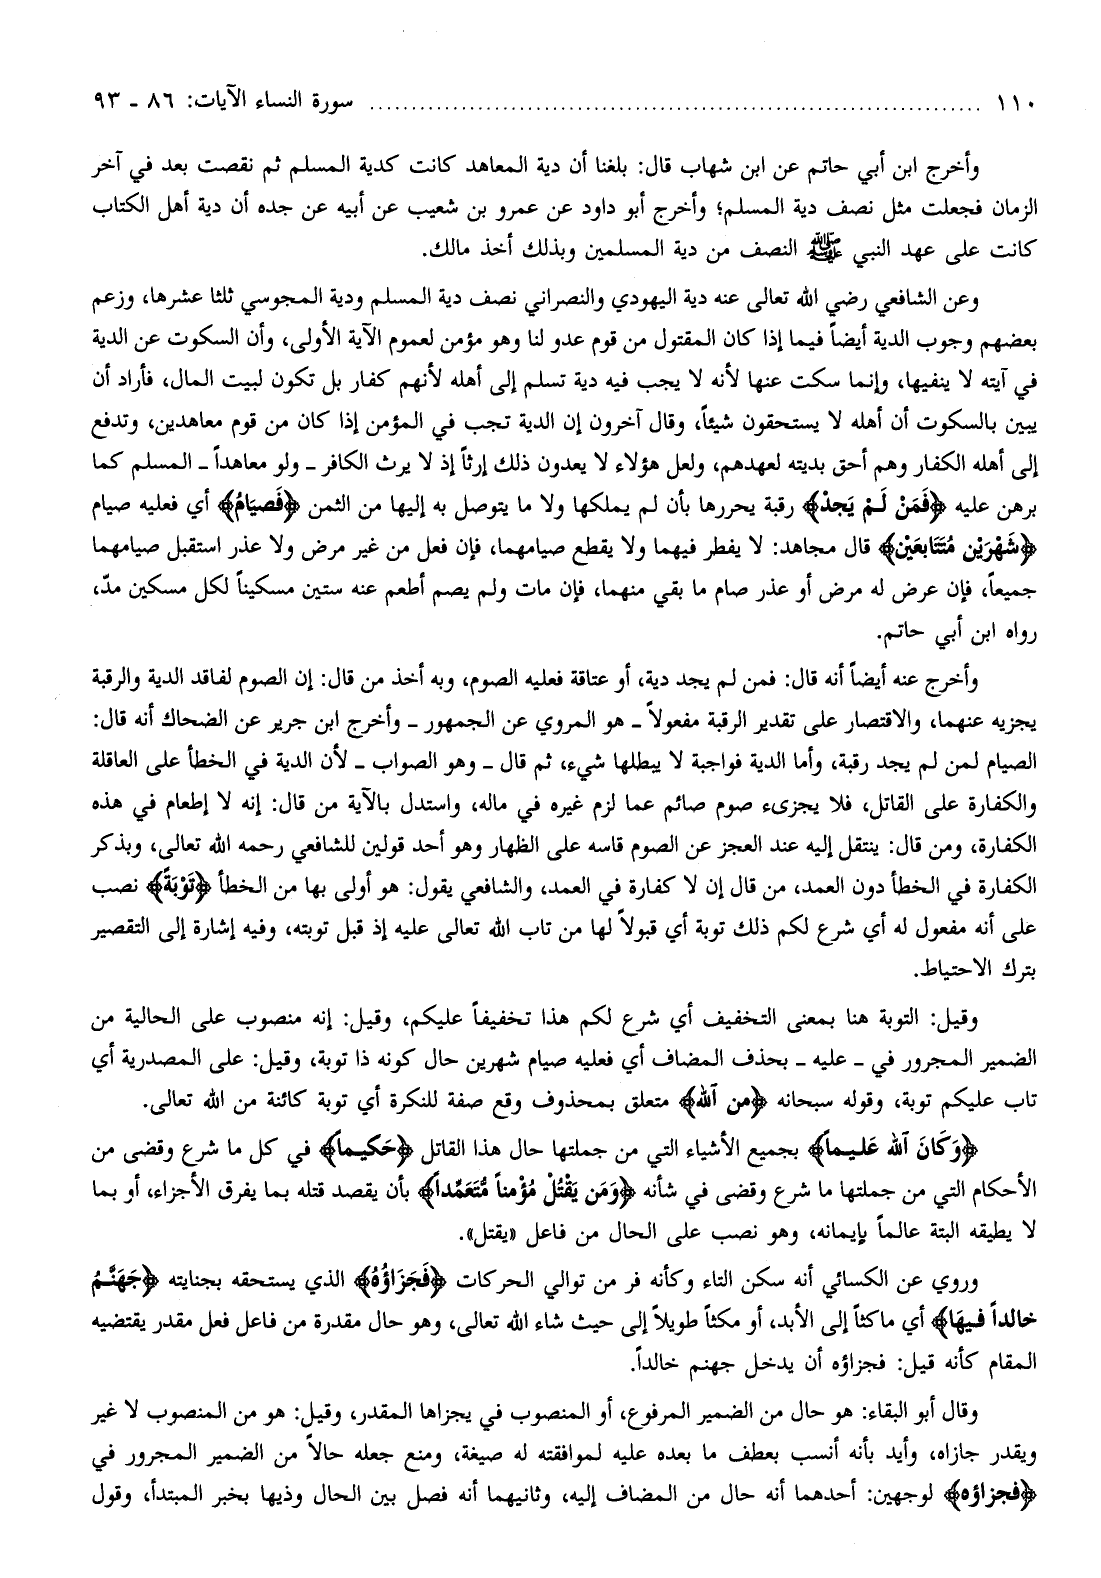 ١١٠ ........................................................................ سورة النساء الآيات: ٨٦ ـ ٩٣
وأخرج ابن أبي حاتم عن ابن شهاب قال: بلغنا أن دية المعاهد كانت كدية المسلم ثم نقصت بعد في آخر
الزمان فجعلت مثل نصف دية المسلم؛ وأخرج أبو داود عن عمرو بن شعيب عن أبيه عن جده أن دية أهل الكتاب
كانت على عهد النبي ﷺ النصف من دية المسلمين وبذلك أخذ مالك.
وعن الشافعي رضي الله تعالى عنه دية اليهودي والنصراني نصف دية المسلم ودية المجوسي ثلثا عشرها، وزعم
بعضهم وجوب الدية أيضاً فيما إذا كان المقتول من قوم عدو لنا وهو مؤمن لعموم الآية الأولى، وأن السكوت عن الدية
في آيته لا ينفيها، وإنما سكت عنها لأنه لا يجب فيه دية تسلم إلى أهله لأنهم كفار بل تكون لبيت المال، فأراد أن
يبين بالسكوت أن أهله لا يستحقون شيئاً، وقال آخرون إن الدية تجب في المؤمن إذا كان من قوم معاهدين، وتدفع
إلى أهله الكفار وهم أحق بديته لعهدهم، ولعل هؤلاء لا يعدون ذلك إرثاً إذ لا يرث الكافر ـ ولو معاهداً ـ المسلم كما
برهن عليه ﴿فَمَنْ لَمْ يَجِدْ﴾ رقبة يحررها بأن لم يملكها ولا ما يتوصل به إليها من الثمن ﴿فَصِيَامُ﴾ أي فعليه صيام
﴿شَهْرَيْنِ مُتَتَابِعَيْنِ﴾ قال مجاهد: لا يفطر فيهما ولا يقطع صيامهما، فإن فعل من غير مرض ولا عذر استقبل صيامهما
جميعاً، فإن عرض له مرض أو عذر صام ما بقي منهما، فإن مات ولم يصم أطعم عنه ستين مسكيناً لكل مسكين مدّ،
رواه ابن أبي حاتم.
وأخرج عنه أيضاً أنه قال: فمن لم يجد دية، أو عتاقة فعليه الصوم، وبه أخذ من قال: إن الصوم لفاقد الدية والرقبة
يجزيه عنهما، والاقتصار على تقدير الرقبة مفعولاً ـ هو المروي عن الجمهور ـ وأخرج ابن جرير عن الضحاك أنه قال:
الصيام لمن لم يجد رقبة، وأما الدية فواجبة لا يبطلها شيء، ثم قال ـ وهو الصواب ـ لأن الدية في الخطأ على العاقلة
والكفارة على القاتل، فلا يجزىء صوم صائم عما لزم غيره في ماله، واستدل بالآية من قال: إنه لا إطعام في هذه
الكفارة، ومن قال: ينتقل إليه عند العجز عن الصوم قاسه على الظهار وهو أحد قولين للشافعي رحمه الله تعالى، وبذكر
الكفارة في الخطأ دون العمد، من قال إن لا كفارة في العمد، والشافعي يقول: هو أولى بها من الخطأ ﴿تَوْبَةً﴾ نصب
على أنه مفعول له أي شرع لكم ذلك توبة أي قبولاً لها من تاب الله تعالى عليه إذ قبل توبته، وفيه إشارة إلى التقصير
بترك الاحتياط.
وقيل: التوبة هنا بمعنى التخفيف أي شرع لكم هذا تخفيفاً عليكم، وقيل: إنه منصوب على الحالية من
الضمير المجرور في ـ عليه ـ بحذف المضاف أي فعليه صيام شهرين حال كونه ذا توبة، وقيل: على المصدرية أي
تاب عليكم توبة، وقوله سبحانه ﴿مِن آللهِ﴾ متعلق بمحذوف وقع صفة للنكرة أي توبة كائنة من الله تعالى.
﴿وَكَانَ آللهُ عَلِيماً﴾ بجميع الأشياء التي من جملتها حال هذا القاتل ﴿حَكِيماً﴾ في كل ما شرع وقضى من
الأحكام التي من جملتها ما شرع وقضى في شأنه ﴿وَمَن يَقْتُلْ مُؤْمِناً مُّتَعَمِّداً﴾ بأن يقصد قتله بما يفرق الأجزاء، أو بما
لا يطيقه البتة عالماً بإيمانه، وهو نصب على الحال من فاعل «يقتل».
وروي عن الكسائي أنه سكن التاء وكأنه فر من توالي الحركات ﴿فَجَزَاؤُهُ﴾ الذي يستحقه بجنايته ﴿جَهَنَّمُ
خالداً فِيهَا﴾ أي ماكثاً إلى الأبد، أو مكثاً طويلاً إلى حيث شاء الله تعالى، وهو حال مقدرة من فاعل فعل مقدر يقتضيه
المقام كأنه قيل: فجزاؤه أن يدخل جهنم خالداً.
وقال أبو البقاء: هو حال من الضمير المرفوع، أو المنصوب في يجزاها المقدر، وقيل: هو من المنصوب لا غير
ويقدر جازاه، وأيد بأنه أنسب بعطف ما بعده عليه لموافقته له صيغة، ومنع جعله حالاً من الضمير المجرور في
﴿فجزاؤه﴾ لوجهين: أحدهما أنه حال من المضاف إليه، وثانيهما أنه فصل بين الحال وذيها بخبر المبتدأ، وقول